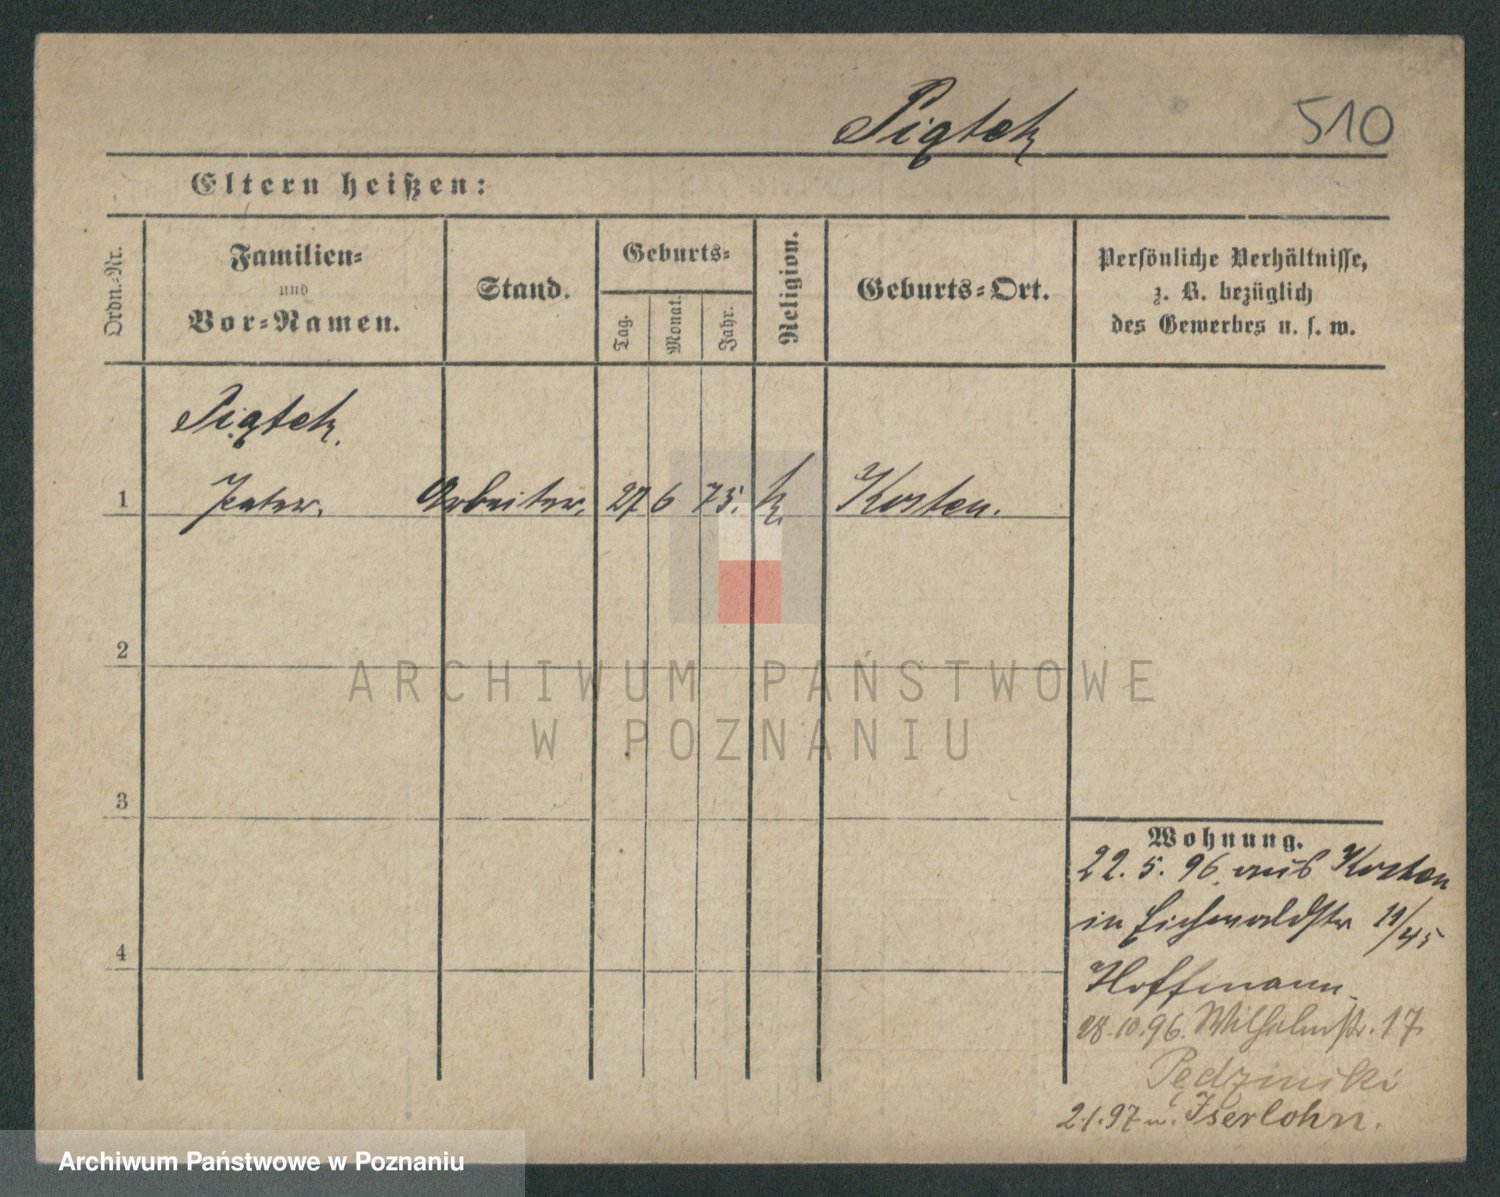 Piątek 510
Eltern heißen:
Ordn.-Nr.
Familien-
und
Vor-Namen.
Stand.
Geburts-
Tag.
Monat.
Jahr.
Religion.
Geburts-Ort.
Persönliche Verhältnisse,
z. B. bezüglich
des Gewerbes u. s. w.
Piątek.
1 Peter. Arbeiter. 27 6 75. k. Kosten.
2
3
4
Wohnung.
22. 5. 96. aus Kosten
in Eichwaldstr 11/45
Hoffmann.
28.10.96. Wilhelmstr. 17.
Pędzinski
2.1.97 n. Iserlohn.
ARCHIWUM PAŃSTWOWE
W POZNANIU
Archiwum Państwowe w Poznaniu